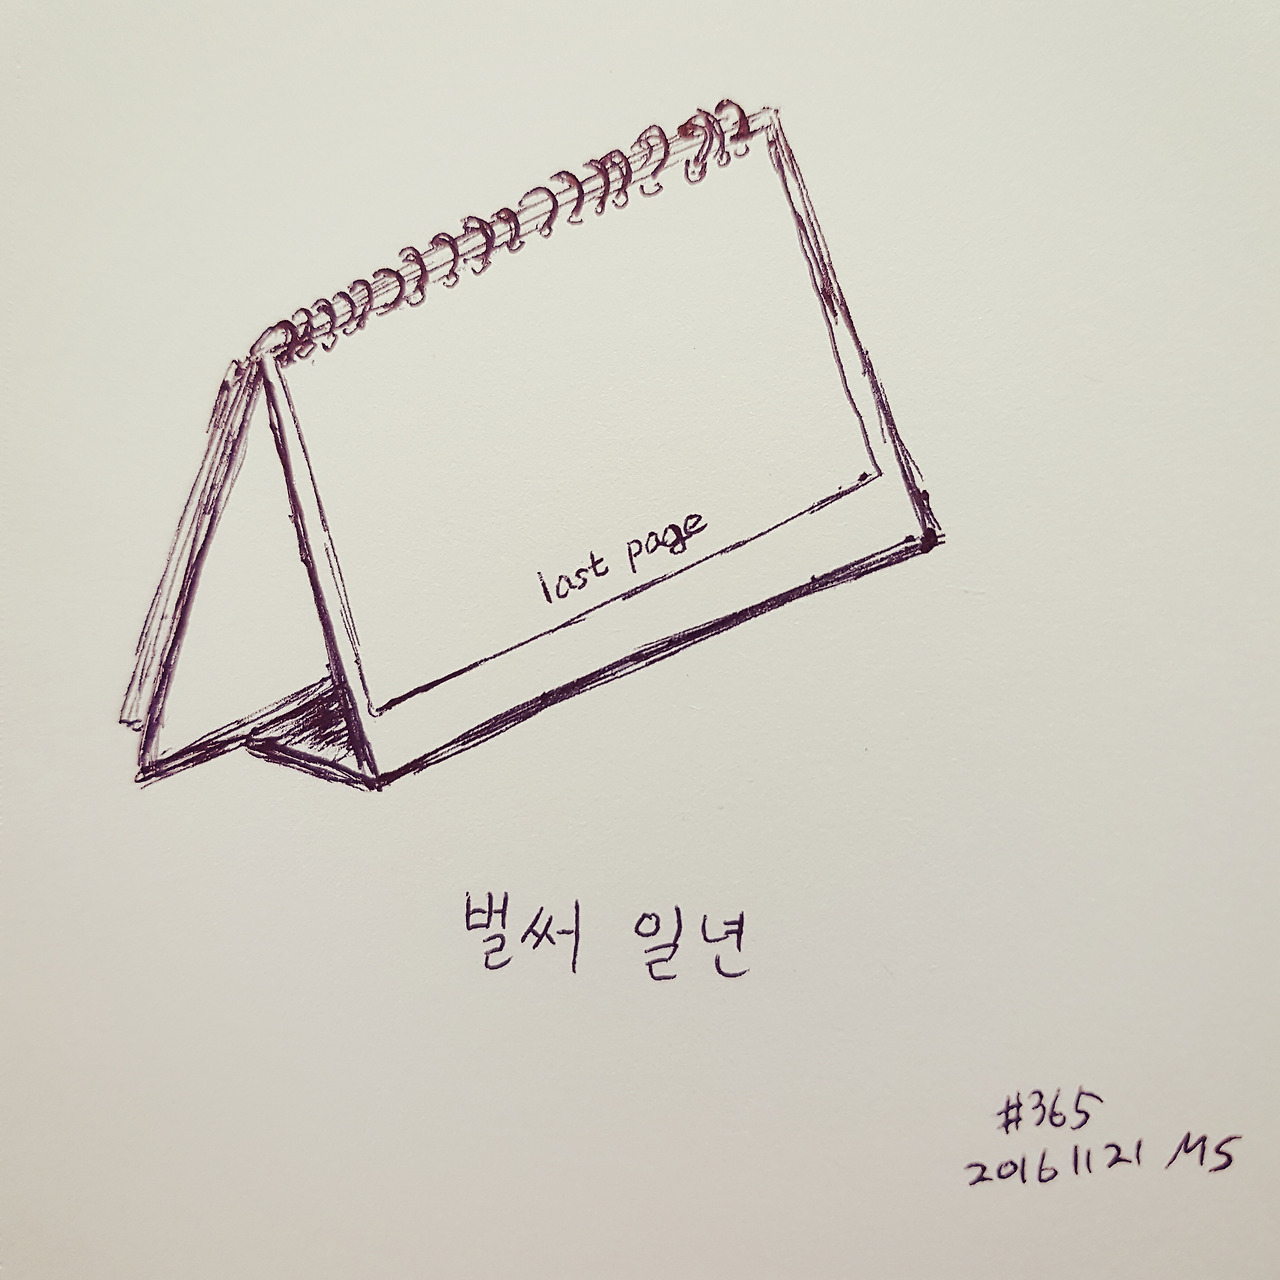 last page
벌써 일년
#365
20161121 MS